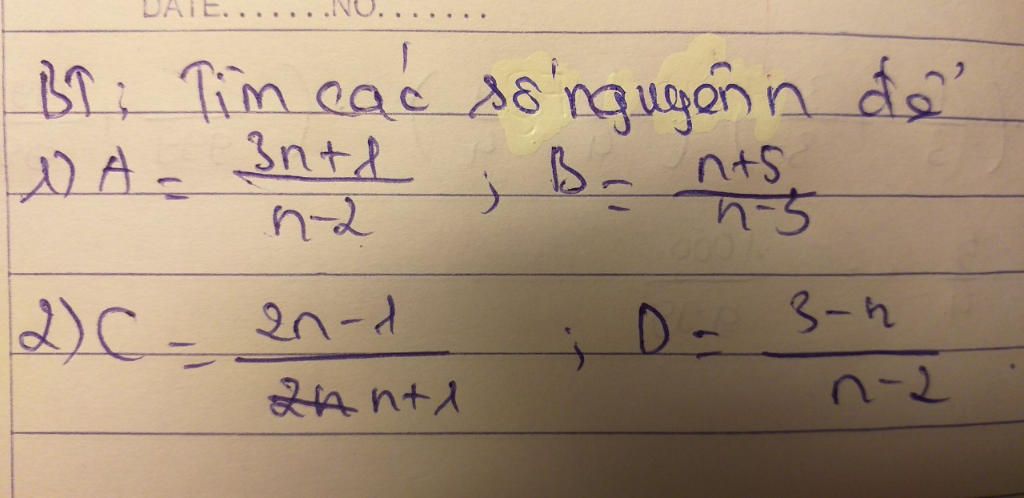 DATE.......NO.......
BT: Tìm các số nguyên n để
1) A = \frac{3n+1}{n-2} ; B = \frac{n+5}{n-5}
2) C = \frac{2n-1}{~~2n~~ n+1} ; D = \frac{3-n}{n-2}